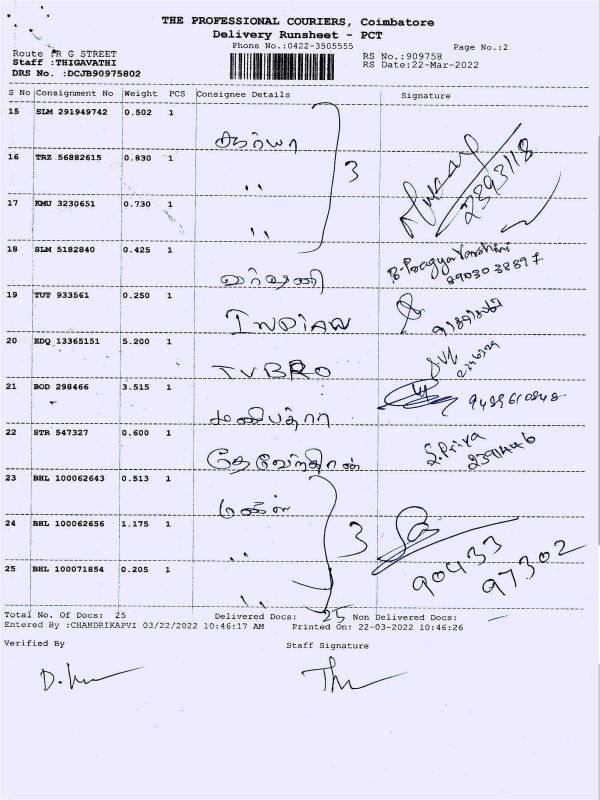 THE PROFESSIONAL COURIERS, Coimbatore
Delivery Runsheet - PCT
Phone No.:0422-3505555
Page No.:2
Route :R G STREET
Staff :THIGAVATHI
DRS No. :DCJB90975802
RS No.:909758
RS Date:22-Mar-2022
S No Consignment No Weight PCS Consignee Details Signature
15 SLM 291949742 0.502 1
3
16 TRZ 56882615 0.830 1
,,
2393118
17 KMU 3230651 0.730 1
,,
18 SLM 5182840 0.425 1
வர்ஷணி
19 TUT 933561 0.250 1
INDIAN
20 EDQ 13365151 5.200 1
TVBRO
21 BOD 298466 3.515 1
மணிபத்ரா
22 STR 547327 0.600 1
தேவேந்திரன் S. Priya
23 BHL 100062643 0.513 1
24 BHL 100062656 1.175 1
,, 3
90433
97302
25 BHL 100071854 0.205 1
,,
Total No. Of Docs: 25 Delivered Docs: 25 Non Delivered Docs:
Entered By :CHANDRIKAPVI 03/22/2022 10:46:17 AM Printed On: 22-03-2022 10:46:26
Verified By Staff Signature